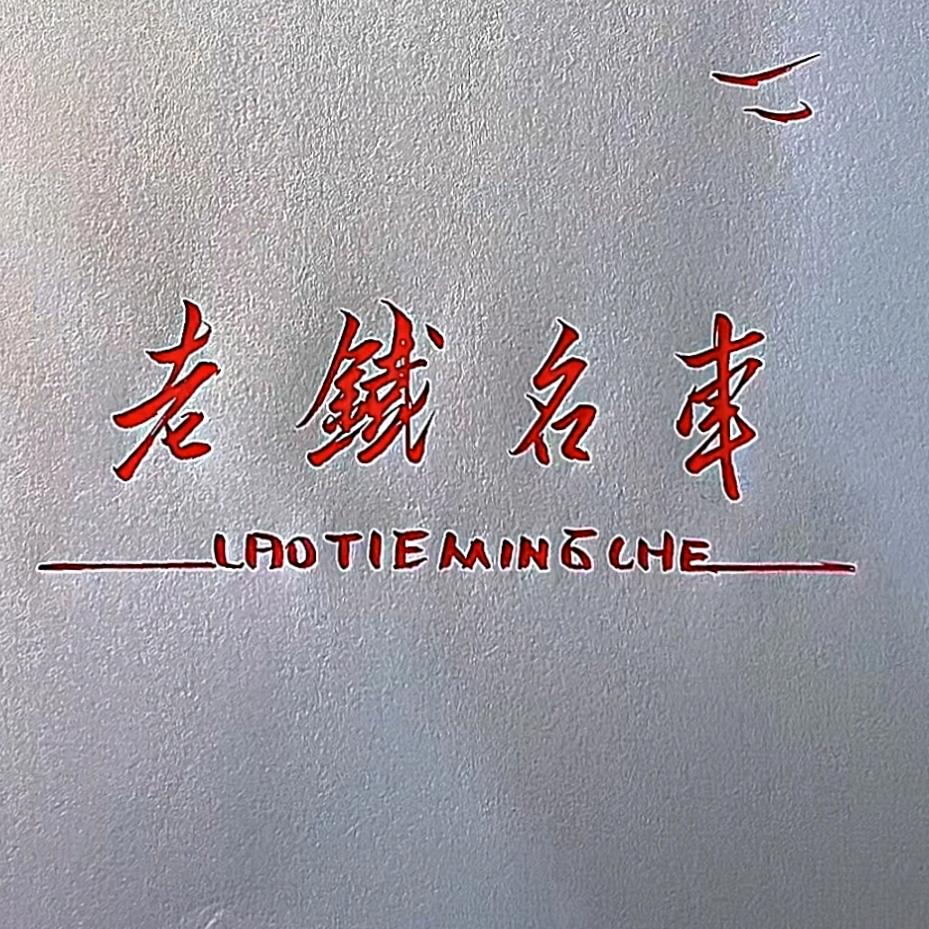 老鐵名車
LAOTIEMINGCHE